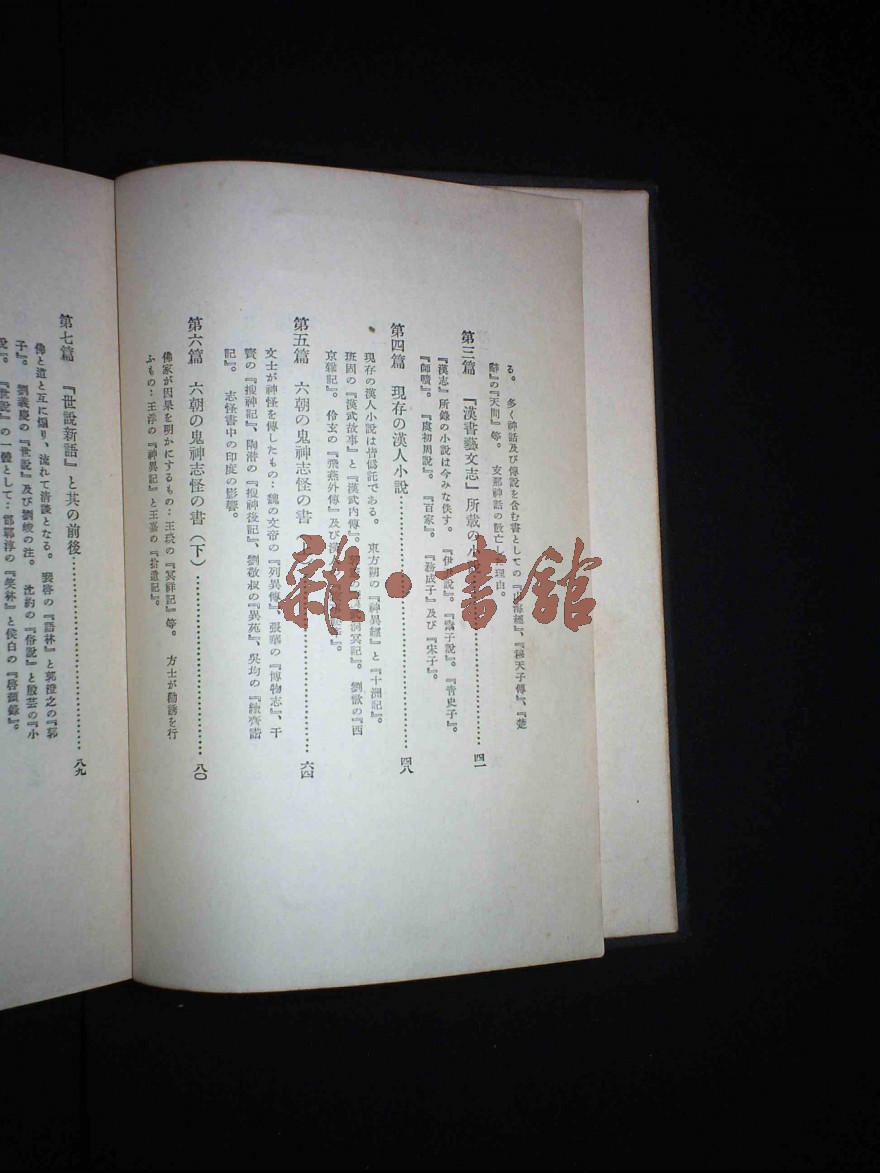 る。 多く神話及び傳說を含む書としての『山海經』、『穆天子傳』、『楚
辭』の『天問』等。 支那神話の散亡した理由。
第三篇 『漢書藝文志』所載の小說 四一
『漢志』所錄の小說は今みな佚す。 『伊尹說』。 『鬻子說』。 『靑史子』。
『師曠』。 『虞初周說』。 『百家』。 『務成子』及び『宋子』。
第四篇 現存の漢人小說 四八
現存の漢人小說は皆僞託である。 東方朔の『神異經』と『十洲記』。
班固の『漢武故事』と『漢武內傳』。 洞冥記』。 劉歆の『西
京雜記』。 伶玄の『飛燕外傳』及び漢人
第五篇 六朝の鬼神志怪の書 六四
文士が神怪を傳したもの：魏の文帝の『列異傳』、張華の『博物志』、干
寶の『搜神記』、陶潛の『搜神後記』、劉敬叔の『異苑』、吳均の『續齊諧
記』。 志怪書中の印度の影響。
第六篇 六朝の鬼神志怪の書（下） 八〇
佛家が因果を明かにするもの：王琰の『冥祥記』等。 方士が勸誘を行
ふもの：王浮の『神異記』と王嘉の『拾遺記』。
第七篇 『世說新語』と其の前後 八九
佛と道と互に煽り、流れて淸談となる。 裴啓の『語林』と郭澄之の『郭
子』。 劉義慶の『世說』及び劉峻の注。 沈約の『俗說』と殷芸の『小
說』。 『世說』の一體として：邯鄲淳の『笑林』と侯白の『啓顏錄』。
雜·書館